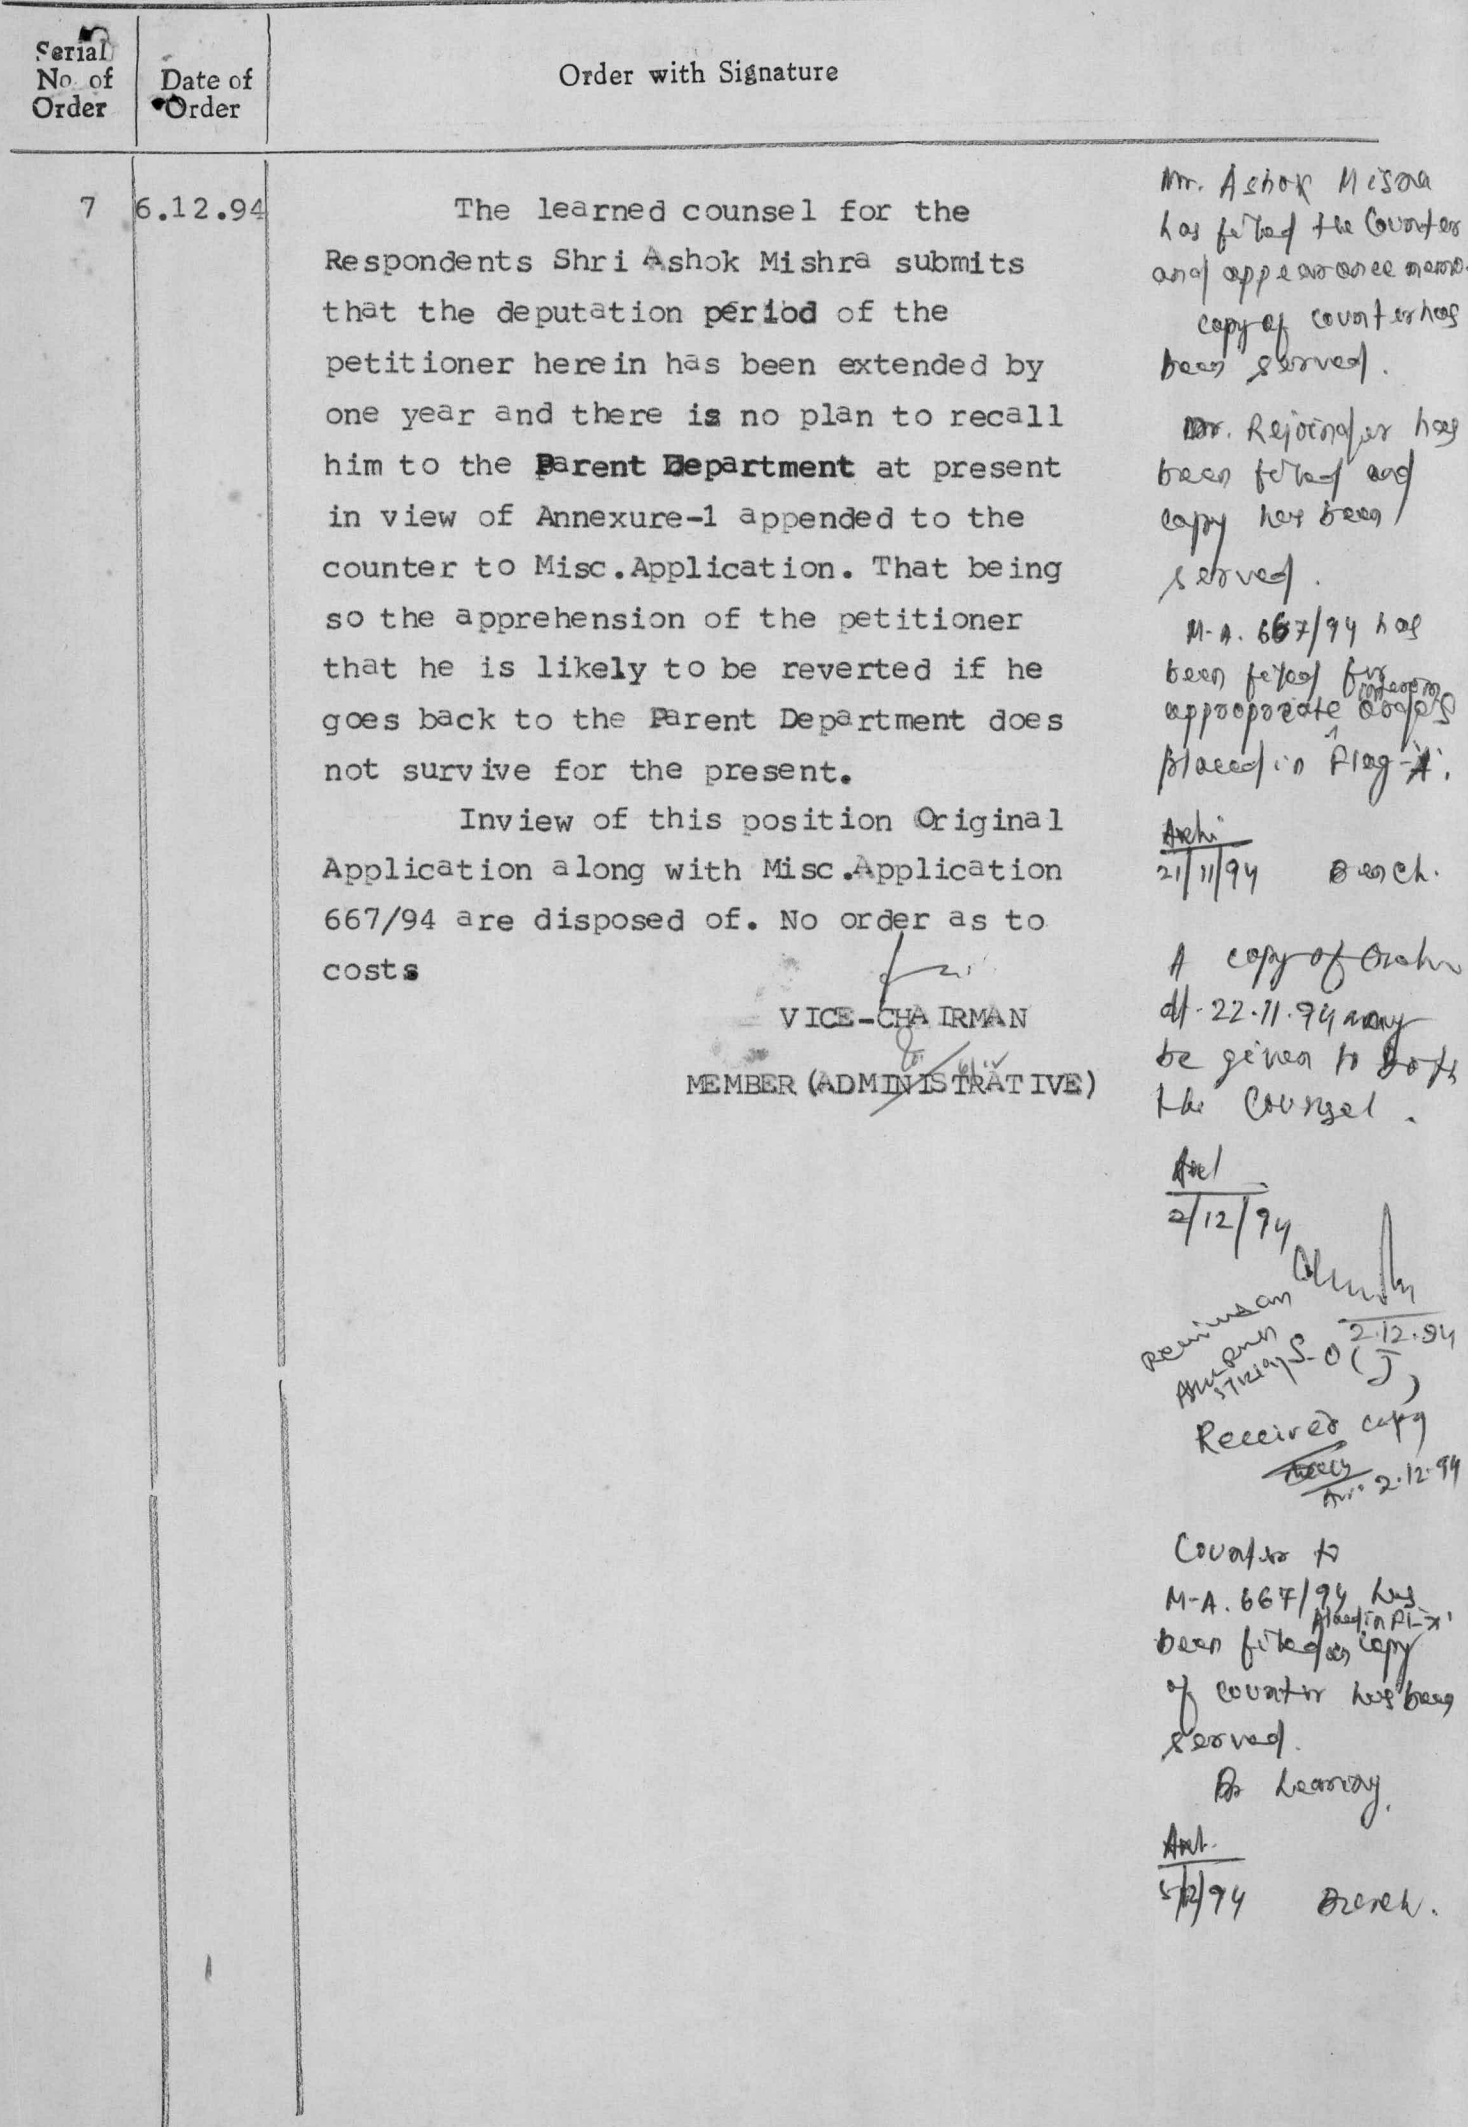 Serial
No. of
Order
Date of
Order
Order with Signature
7
6.12.94
The learned counsel for the
Respondents Shri Ashok Mishra submits
that the deputation period of the
petitioner herein has been extended by
one year and there is no plan to recall
him to the Parent Department at present
in view of Annexure-1 appended to the
counter to Misc.Application. That being
so the apprehension of the petitioner
that he is likely to be reverted if he
goes back to the Parent Department does
not survive for the present.
Inview of this position Original
Application along with Misc.Application
667/94 are disposed of. No order as to
costs
VICE-CHAIRMAN
MEMBER (ADMINISTRATIVE)
Mr. Ashok Misra
has filed the Counter
and appearance memo.
copy of counter has
been served.
Rejoinder has
been filed and
copy has been
served.
M.A. 667/94 has
been filed for
interim
appropriate orders
placed in Flag-
21/11/94 Bench.
A copy of Order
dt. 22.11.94 may
be given to both
the Counsel.
2/12/94
2.12.94
S.O (J)
Received copy
2.12.94
Counter to
M.A. 667/94 has
been filed copy
of counter has been
served.
hearing.
5/12/94 Bench.